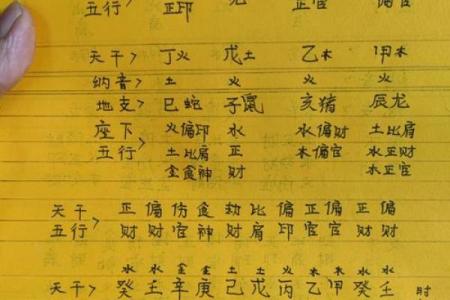 五行> 正印 正官
天干> 丁火 戊土 乙木 甲木
纳音> 土 火 火 火
地支> 巳蛇 子鼠 亥猪 辰龙
座下 火偏印 水 水偏财 土比肩
五行> 土比肩 正 木偏官 水正财
金食神 财 木正官
天干 正 偏 伤 食 劫 比 偏 正 偏 正 偏
五行> 财 财 官 神 财 肩 印 官 官 财 财
水 水 金 金 土 土 火 木 木 水 水
天干> 癸 壬 辛 庚 己 戊 丙 乙 甲 癸 壬 时